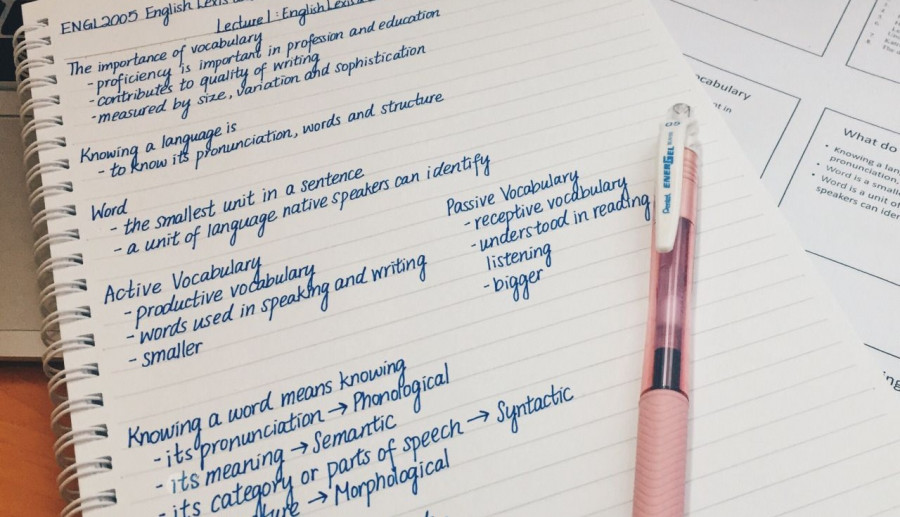 ENGL2005 English Lexis
Lecture 1: English Lexis
The importance of vocabulary
- proficiency is important in profession and education
- contributes to quality of writing
- measured by size, variation and sophistication
Knowing a language is
- to know its pronunciation, words and structure
Word
- the smallest unit in a sentence
- a unit of language native speakers can identify
Active Vocabulary
- productive vocabulary
- words used in speaking and writing
- smaller
Passive Vocabulary
- receptive vocabulary
- understood in reading
listening
- bigger
Knowing a word means knowing
- its pronunciation → Phonological
- its meaning → Semantic
- its category or parts of speech → Syntactic
→ Morphological
Pentel ENERGEL
05
What do
• Knowing a lan
pronunciation,
• Word is a small
• Word is a unit of
speakers can iden